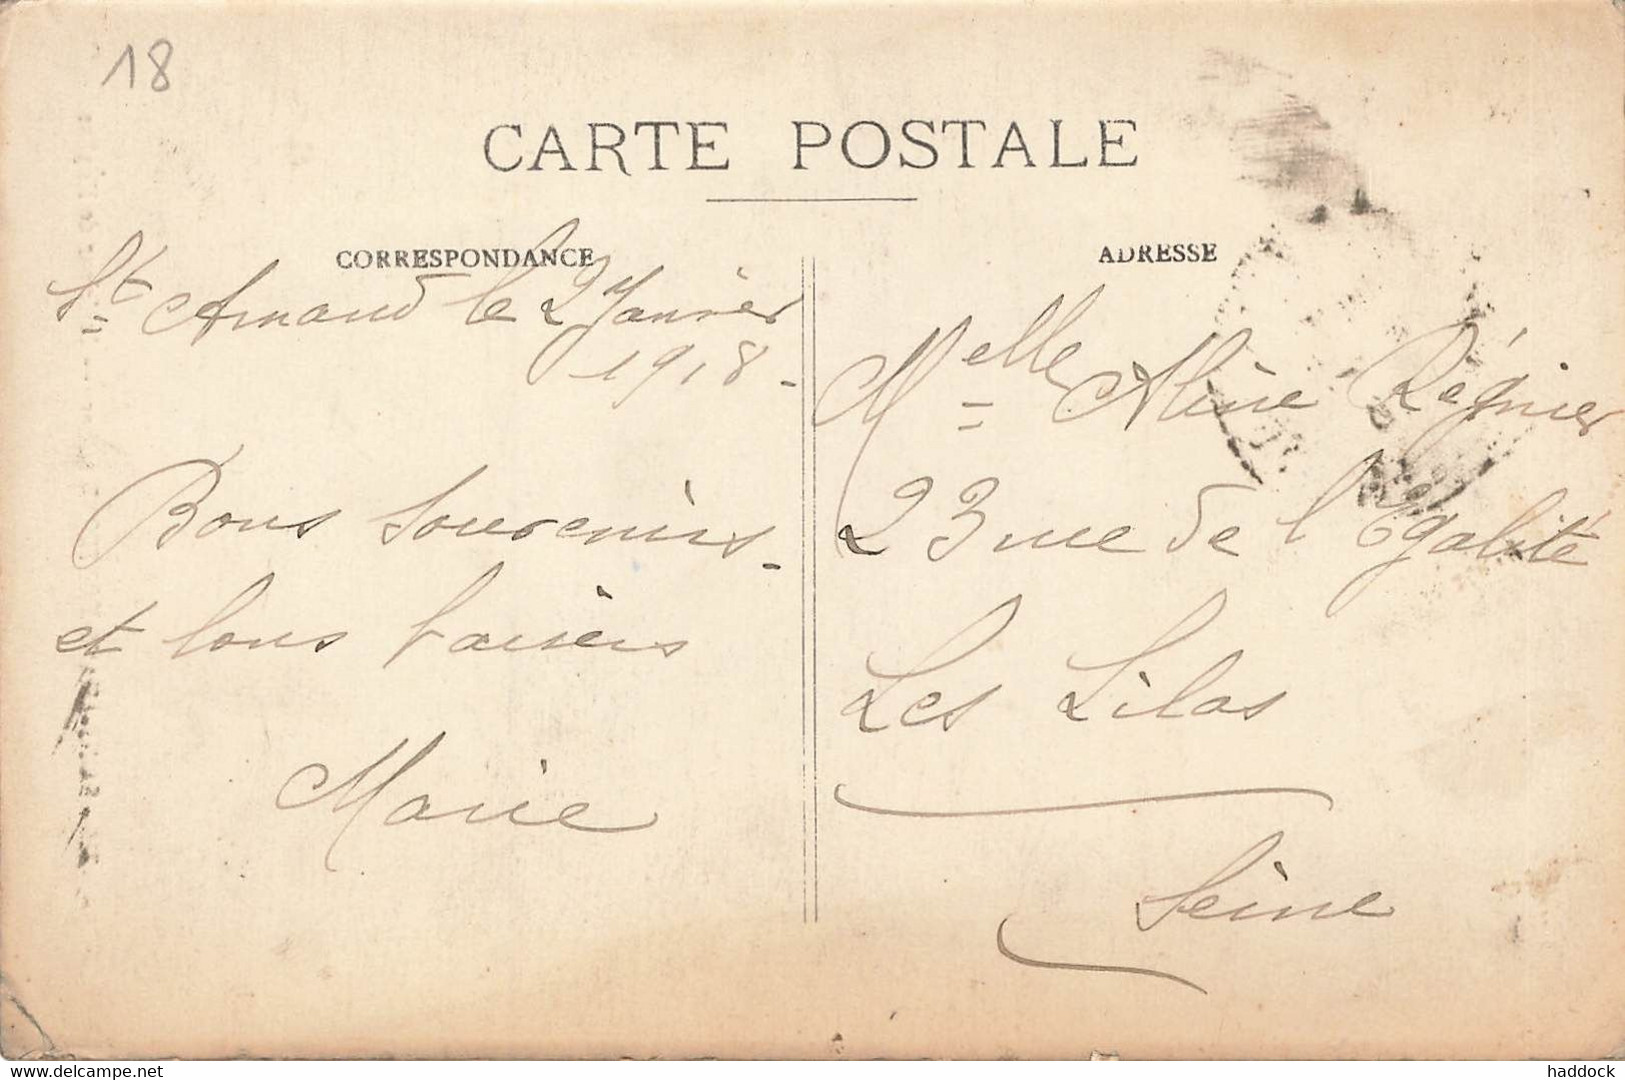 18
CARTE POSTALE
CORRESPONDANCE
St Amand le 2 Janvier
1918 -
Bons Souvenirs -
et bons baisers
Marie
ADRESSE
Melle Aline Régnier
23 rue de l'Egalité
Les Lilas
Seine
delcampe.net
haddock